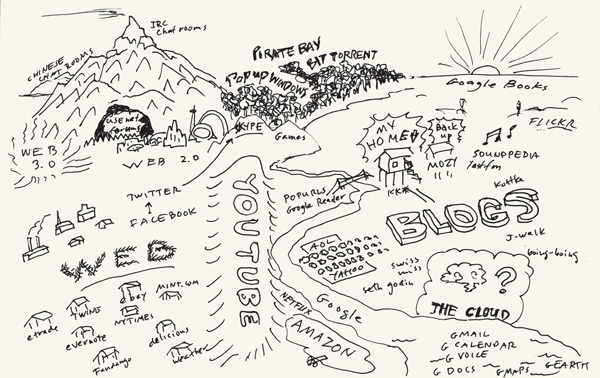 IRC
Chat rooms
CHINESE
CHAT ROOMS
PIRATE BAY
BIT TORRENT
POPUP WINDOWS
Google Books
usenet
forums
HYPE
Games
MY
HOME
Back
up
FLICKR
WEB
3.0
WEB 2.0
MOZI
SOUNDPEDIA
lastfm
TWITTER
FACEBOOK
POPURLS
Google Reader
KK*
Kottke
YOUTUBE
BLOGS
J-walk
boing-boing
WEB
AOL
YAHOO
swiss
miss
seth godin
?
THE CLOUD
ebay
MINT.COM
etrade
TWINS
NYTIMES
evernote
delicious
Fandango
weather
NETFLIX
Google
AMAZON
GMAIL
G CALENDAR
G VOICE
G DOCS
GMAPS
GEARTH